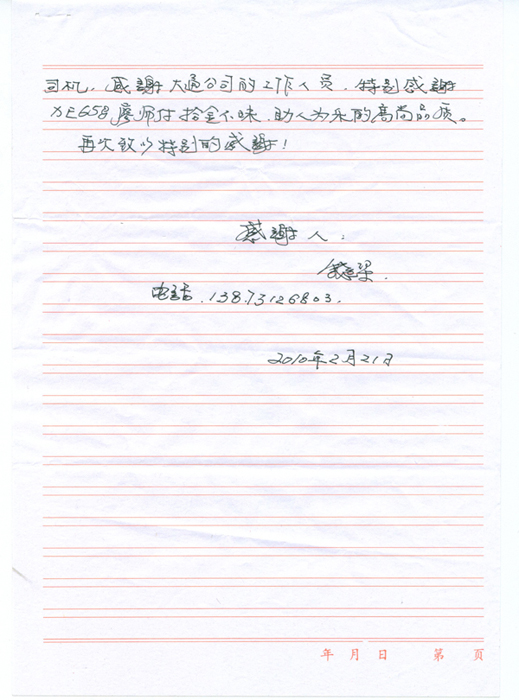 司机，感謝大通公司的工作人员，特别感謝
XE658廖师付拾金不昧，助人为乐的高尚品质。
再次致以特别的感謝！
感謝人：
电话，13873126803.
2010年2月21日
年 月 日 第 页